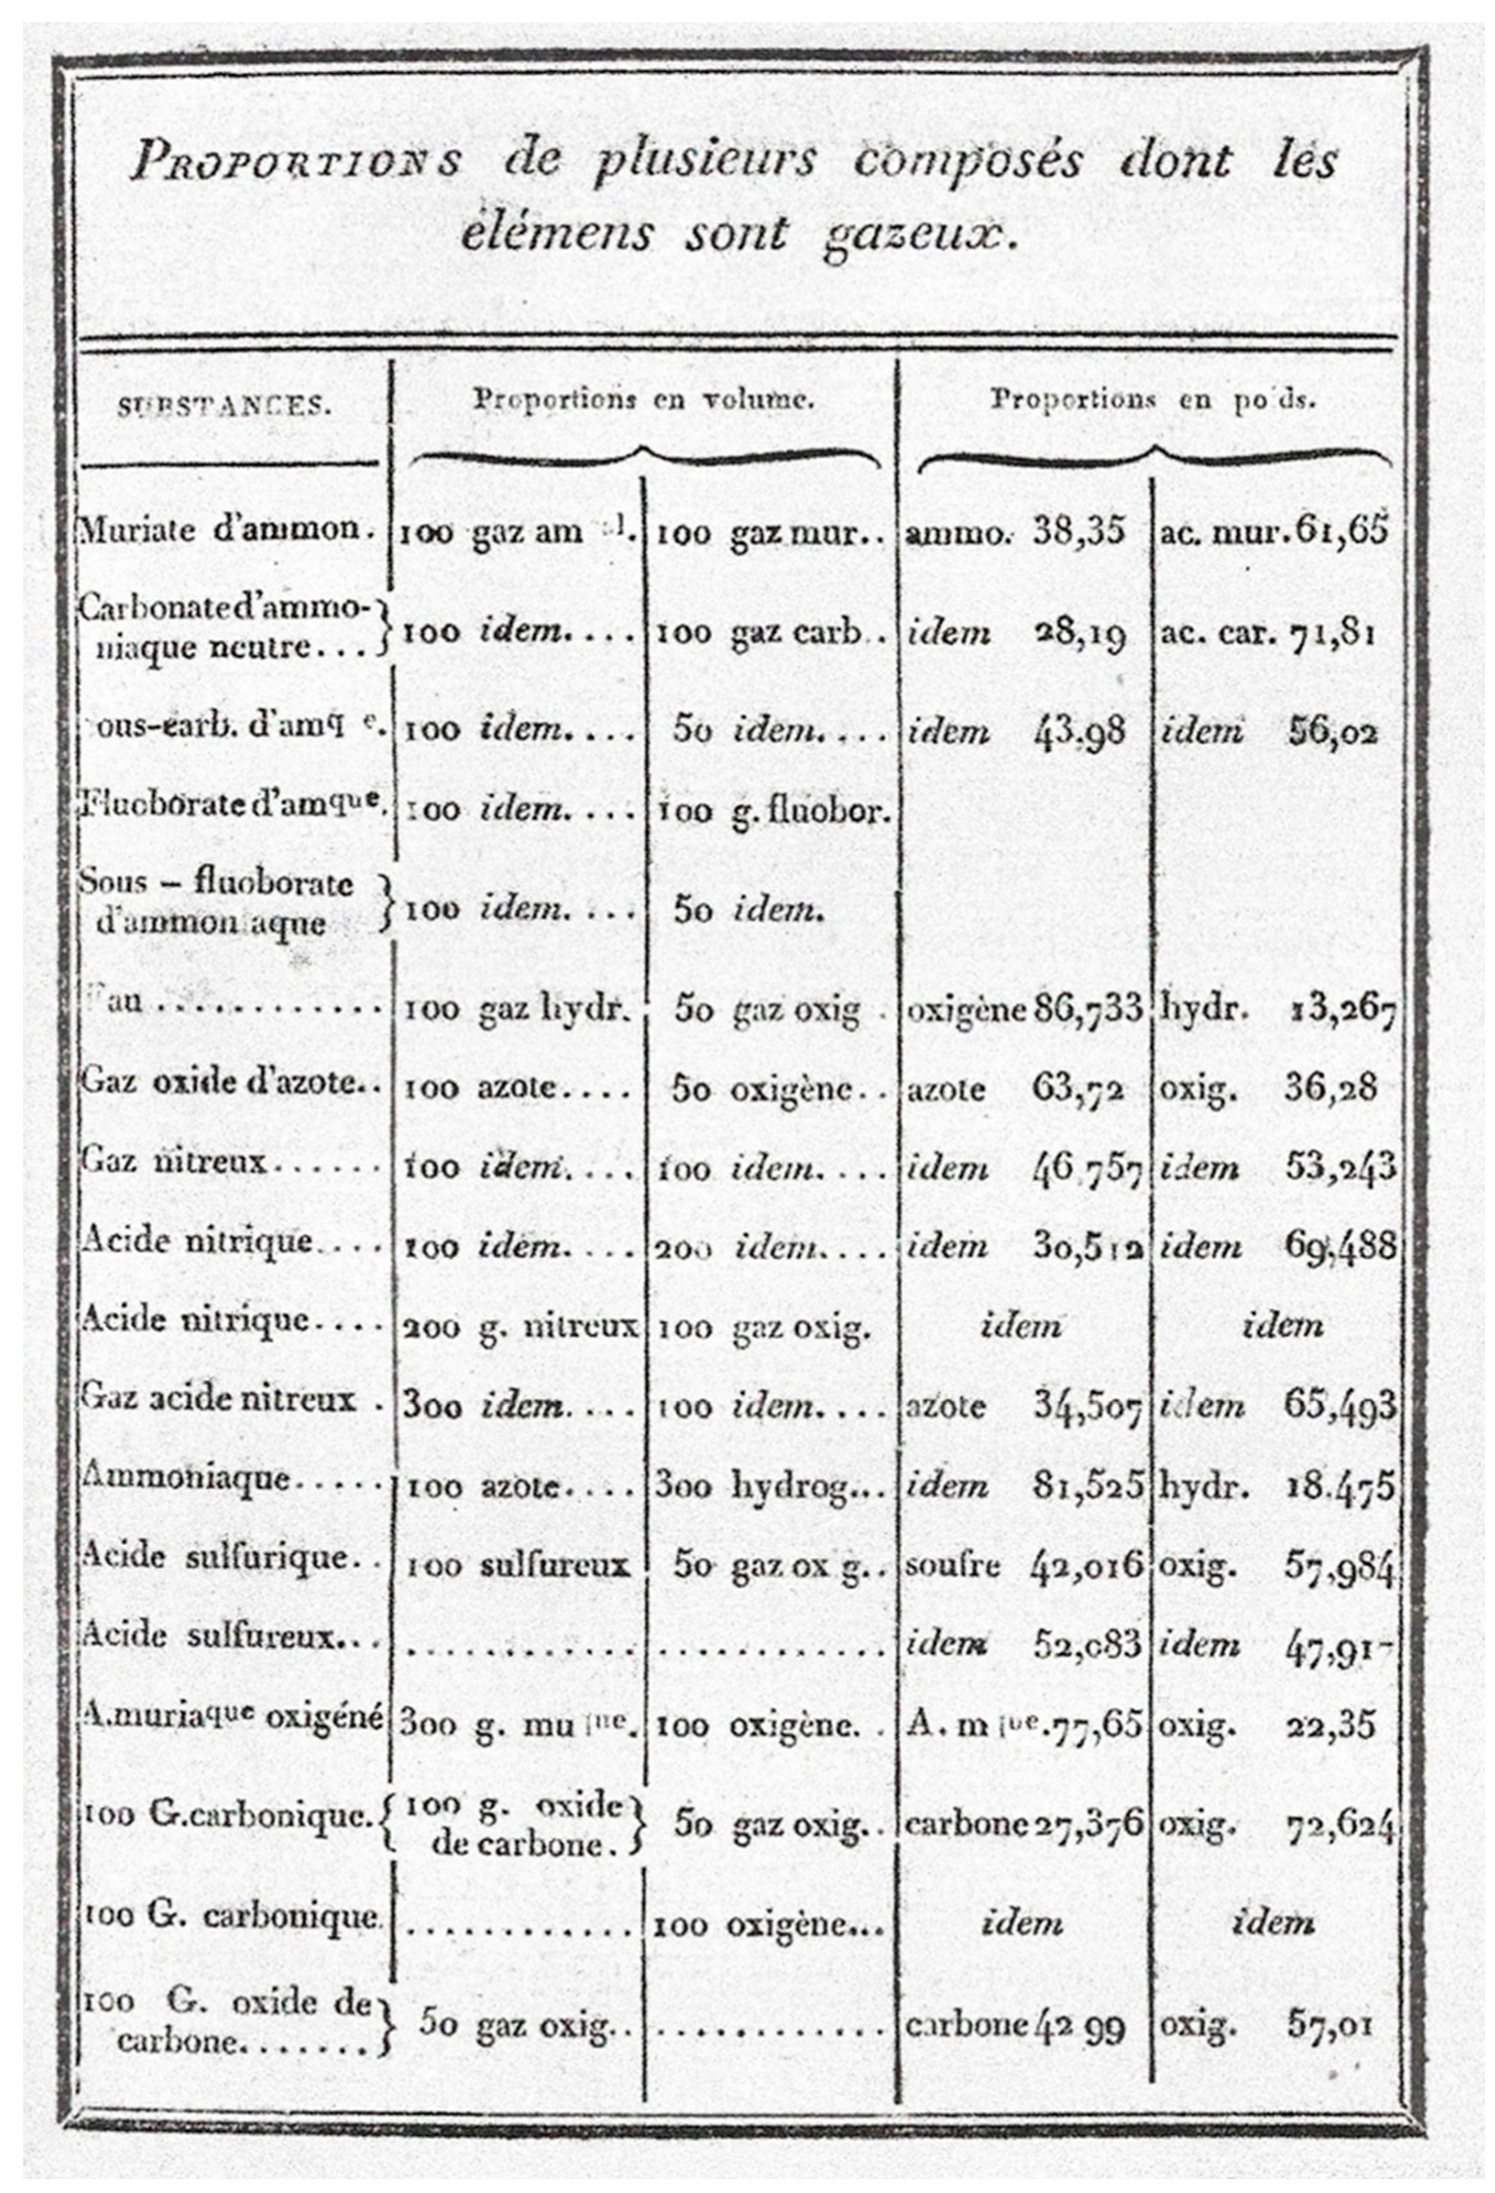 PROPORTIONS de plusieurs composés dont les
élémens sont gazeux.
SUBSTANCES. Proportions en volume. Proportions en po ds.
Muriate d'ammon. 100 gaz am l. 100 gaz mur.. ammo. 38,35 ac. mur. 61,65
Carbonate d'ammo-
niaque neutre... 100 idem.... 100 gaz carb.. idem 28,19 ac. car. 71,81
ous-carb. d'amq e. 100 idem.... 50 idem.... idem 43.98 idem 56,02
Fluoborate d'amque. 100 idem.... 100 g. fluobor.
Sous – fluoborate
d'ammon aque 100 idem.... 50 idem.
au ............ 100 gaz hydr. 50 gaz oxig . oxigène 86,733 hydr. 13,267
Gaz oxide d'azote.. 100 azote.... 50 oxigène.. azote 63,72 oxig. 36,28
Gaz nitreux...... 100 idem.... 100 idem.... idem 46 757 idem 53,243
Acide nitrique.... 100 idem.... 200 idem.... idem 30,512 idem 69,488
Acide nitrique.... 200 g. nitreux 100 gaz oxig. idem idem
Gaz acide nitreux . 300 idem.... 100 idem.... azote 34,507 idem 65,493
Ammoniaque..... 100 azote.... 300 hydrog... idem 81,525 hydr. 18.475
Acide sulfurique.. 100 sulfureux 50 gaz ox g.. soufre 42,016 oxig. 57,984
Acide sulfureux... ............ ............ idem 52,083 idem 47,917
A.muriaque oxigéné 300 g. mu ue. 100 oxigène. . A. m ue. 77,65 oxig. 22,35
100 G.carbonique. 100 g. oxide
de carbone. 50 gaz oxig.. carbone 27,376 oxig. 72,624
100 G. carbonique. ............ 100 oxigène... idem idem
100 G. oxide de
carbone....... 50 gaz oxig.. ............ carbone 42 99 oxig. 57,01